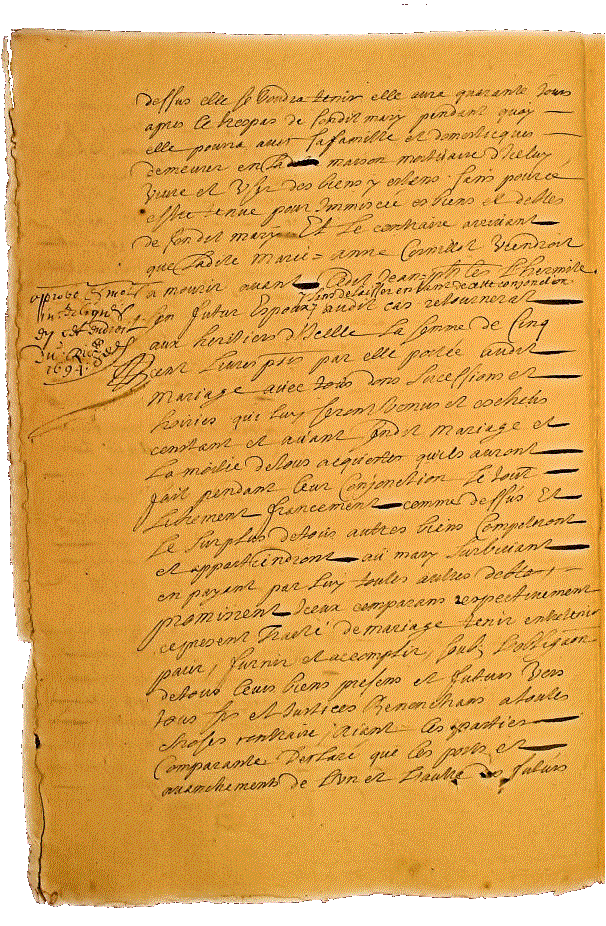 dessus elle se voudra tenir elle aura quarante jours
apres le trespas de sondit mary pendant quoy
elle poura avec sa famille et domesticques
demeurer en la maison mortuaire d'Iceluy
vivre et user des biens y estans sans pour ce
estre tenue pour Immiscée es biens et debtes
de sondit mary Et Le contraire arrivant
que ladite Marie Anne viendroit
a mourir avant Ledit Jean L'hermite
sans delaisser enfans de cette conjonction
son futur Espoux audit cas retournerat
aux heritiers d'Icelle La somme de Cinq
cent Livres par elle portée audit
mariage avec tous dons sucessions et
hoiries que luy seront venus et eschus
constant et avant sondit mariage et
La moitié de tous acquestes qu'ils auront
fait pendant leur Conjonction Le tout
Librement francement comme dessus Et
Le surplus de tous autres biens Competront
et appartiendront au mary survivant
en payant par luy toutes autres debtes,
promirent Iceux comparans respectivement
ce present Traité de mariage tenir entretenir
paier, furnir et accomplir, soub l'obligaon
de tous leurs biens presens et futurs vers
tous et Justices Renonchans a toutes
choses contraire, aiant Les parties
Comparante Declaré que Les ports et
avanchements de L'un et L'autre des futurs
aprobé
du
1694